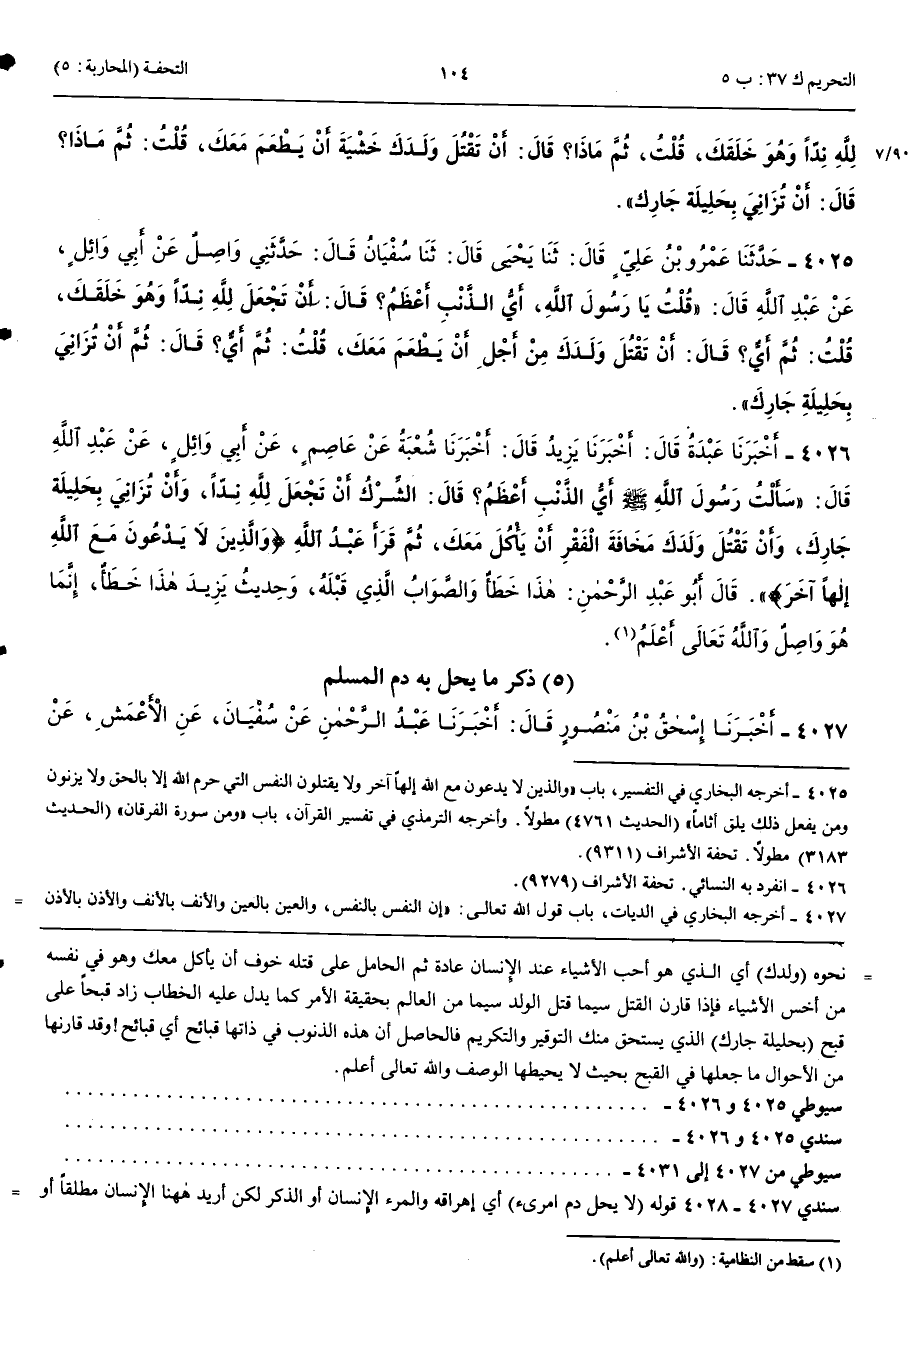 التحريم ك ٣٧: ب ٥
١٠٤
التحفة (المحاربة: ٥)
٧/٩٠
لِلَّهِ نِدّاً وَهُوَ خَلَقَكَ، قُلْتُ، ثُمَّ مَاذَا؟ قَالَ: أَنْ تَقْتُلَ وَلَدَكَ خَشْيَةَ أَنْ يَطْعَمَ مَعَكَ، قُلْتُ: ثُمَّ مَاذَا؟
قَالَ: أَنْ تُزَانِيَ بِحَلِيلَة جَارِك».
٤٠٢٥ ـ حَدَّثَنَا عَمْرُو بْنُ عَلِيٍّ قَالَ: ثَنَا يَحْيَى قَالَ: ثَنَا سُفْيَانُ قَالَ: حَدَّثَنِي وَاصِلٌ عَنْ أَبِي وَائِلٍ،
عَنْ عَبْدِ اللَّهِ قَالَ: «قُلْتُ يَا رَسُولَ اللَّهِ، أَيُّ الذَّنْبِ أَعْظَمُ؟ قَالَ: أَنْ تَجْعَلَ لِلَّهِ نِدّاً وَهُوَ خَلَقَكَ،
قُلْتُ: ثُمَّ أَيٌّ؟ قَالَ: أَنْ تَقْتُلَ وَلَدَكَ مِنْ أَجْلِ أَنْ يَطْعَمَ مَعَكَ، قُلْتُ: ثُمَّ أَيٌّ؟ قَالَ: ثُمَّ أَنْ تُزَانِيَ
بِحَلِيلَةِ جَارِكَ».
٤٠٢٦ ـ أَخْبَرَنَا عَبْدَةُ قَالَ: أَخْبَرَنَا يَزِيدُ قَالَ: أَخْبَرَنَا شُعْبَةُ عَنْ عَاصِمٍ، عَنْ أَبِي وَائِلٍ، عَنْ عَبْدِ اللَّهِ
قَالَ: «سَأَلْتُ رَسُولَ اللَّهِ ﷺ أَيُّ الذَّنْبِ أَعْظَمُ؟ قَالَ: الشِّرْكُ أَنْ تَجْعَلَ لِلَّهِ نِدّاً، وَأَنْ تُزَانِيَ بِحَلِيلَةِ
جَارِكَ، وَأَنْ تَقْتُلَ وَلَدَكَ مَخَافَةَ الْفَقْرِ أَنْ يَأْكُلَ مَعَكَ، ثُمَّ قَرَأَ عَبْدُ اللَّهِ ﴿وَالَّذِينَ لَا يَدْعُونَ مَعَ اللَّهِ
إِلٰهاً آخَرَ﴾». قَالَ أَبُو عَبْدِ الرَّحْمٰنِ: هٰذَا خَطَأٌ وَالصَّوَابُ الَّذِي قَبْلَهُ، وَحَدِيثُ يَزِيدَ هٰذَا خَطَأٌ، إِنَّمَا
هُوَ وَاصِلٌ وَاللَّهُ تَعَالَى أَعْلَمُ(١).
(٥) ذكر ما يحل به دم المسلم
٤٠٢٧ ـ أَخْبَرَنَا إِسْحٰقُ بْنُ مَنْصُورٍ قَالَ: أَخْبَرَنَا عَبْدُ الرَّحْمٰنِ عَنْ سُفْيَانَ، عَنِ الْأَعْمَشِ، عَنْ
٤٠٢٥ ـ أخرجه البخاري في التفسير، باب «والذين لا يدعون مع الله إلهاً آخر ولا يقتلون النفس التي حرم الله إلا بالحق ولا يزنون
ومن يفعل ذلك يلق أثاماً» (الحديث ٤٧٦١) مطولاً. وأخرجه الترمذي في تفسير القرآن، باب «ومن سورة الفرقان» (الحديث
٣١٨٣) مطولاً. تحفة الأشراف (٩٣١١).
٤٠٢٦ ـ انفرد به النسائي. تحفة الأشراف (٩٢٧٩).
٤٠٢٧ ـ أخرجه البخاري في الديات، باب قول الله تعالى: «إن النفس بالنفس، والعين بالعين والأنف بالأنف والأذن بالأذن =
= نحوه (ولدك) أي الذي هو أحب الأشياء عند الإنسان عادة ثم الحامل على قتله خوف أن يأكل معك وهو في نفسه
من أخس الأشياء فإذا قارن القتل سيما قتل الولد سيما من العالم بحقيقة الأمر كما يدل عليه الخطاب زاد قبحاً على
قبح (بحليلة جارك) الذي يستحق منك التوقير والتكريم فالحاصل أن هذه الذنوب في ذاتها قبائح أي قبائح! وقد قارنها
من الأحوال ما جعلها في القبح بحيث لا يحيطها الوصف والله تعالى أعلم.
سيوطي ٤٠٢٥ و ٤٠٢٦ ـ . . . . . . . . . . . . . . . . . . . . . . . . . . . . . .
سندي ٤٠٢٥ و ٤٠٢٦ ـ . . . . . . . . . . . . . . . . . . . . . . . . . . . . . .
سيوطي من ٤٠٢٧ إلى ٤٠٣١ ـ . . . . . . . . . . . . . . . . . . . . . . . . . . . . . .
سندي ٤٠٢٧ ـ ٤٠٢٨ قوله (لا يحل دم امرىء) أي إهراقه والمرء الإنسان أو الذكر لكن أريد ههنا الإنسان مطلقاً أو =
(١) سقط من النظامية: (والله تعالى أعلم).